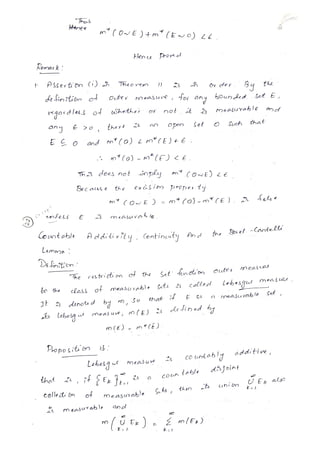 Thus
Hence
m* (O~E) + m* (E~O) < ε.
Hence proved
Remark:
Assertion (i) in Theorem 11 is in order By the
definition of outer measure, for any bounded set E,
regardless of whether or not it is measurable and
any ε > 0, there is an open set O such that
E ⊆ O and m* (O) < m* (E) + ε.
∴ m* (O) - m* (E) < ε.
This does not imply m* (O~E) < ε.
Because the excision property
m* (O~E) = m* (O) - m* (E). is false
unless E is measurable.
Countable Additivity, Continuity and the Borel-Cantelli
Lemma:
Definition:
The restriction of the set function outer measure
to the class of measurable sets is called Lebesgue measure.
It is denoted by m, so that if E is a measurable set,
its Lebesgue measure, m(E) is defined by
m(E) = m*(E).
Proposition 13:
Lebesgue measure is countably additive,
that is, if {Ek}∞k=1 is a countable disjoint
collection of measurable sets, then its union ∞∪k=1 Ek also
is measurable and
m(∞∪k=1 Ek) = ∞Σk=1 m(Ek)